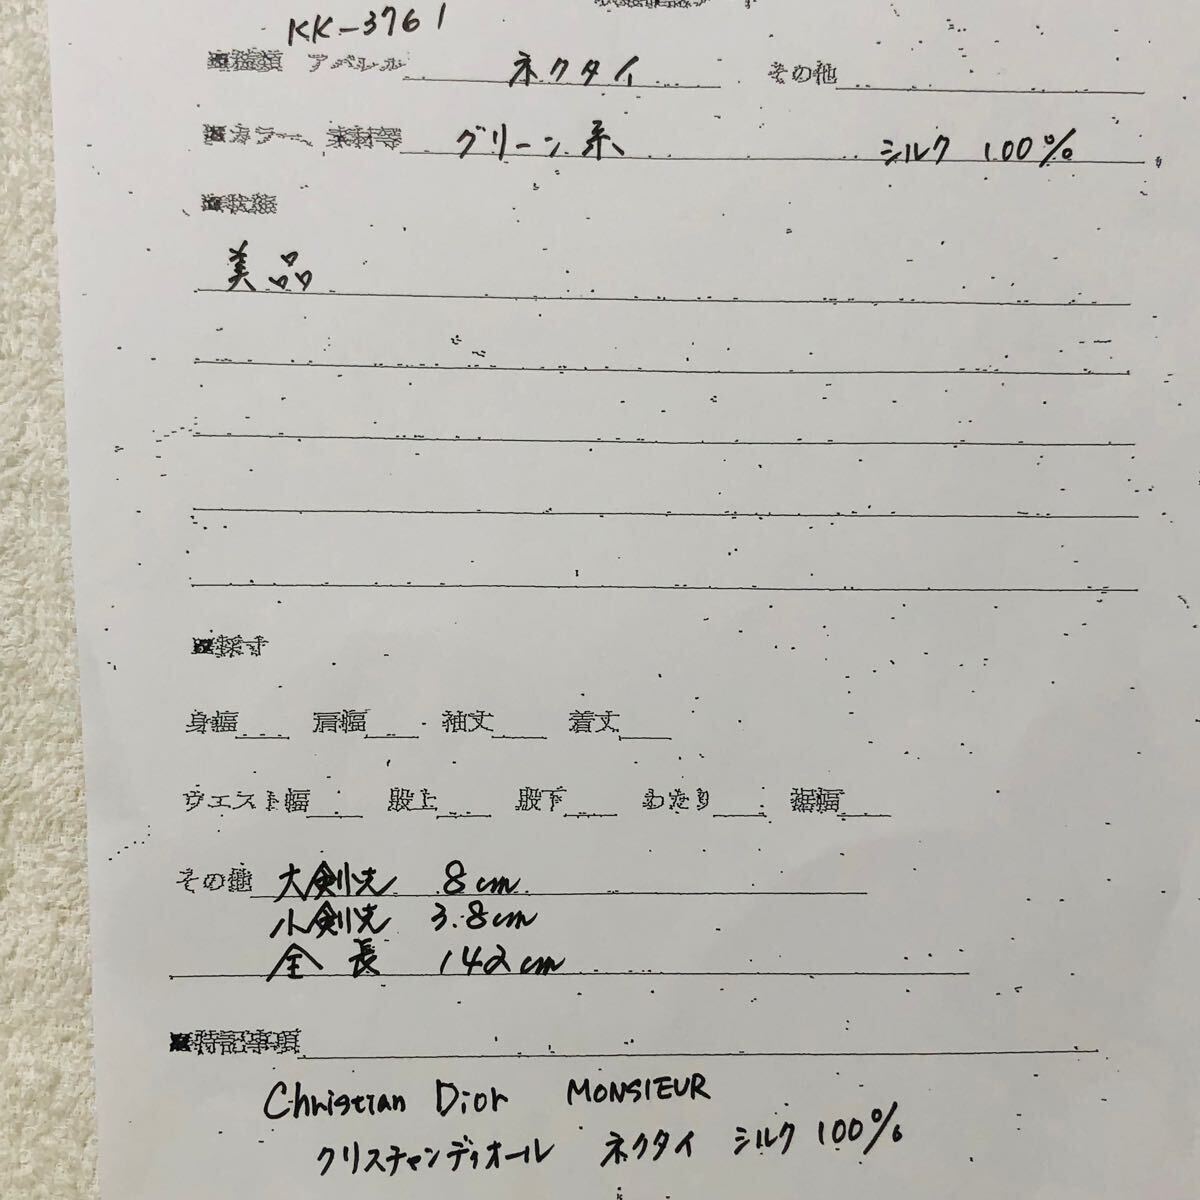 KK-3761
■種類 アパレル ネクタイ その他
■カラー、素材等 グリーン系 シルク 100%
■状態
美品
■採寸
身幅 肩幅 袖丈 着丈
ウエスト幅 股上 股下 わたり 裾幅
その他 大剣先 8cm
小剣先 3.8cm
全長 142cm
■特記事項
Christian Dior MONSIEUR
クリスチャンディオール ネクタイ シルク 100%